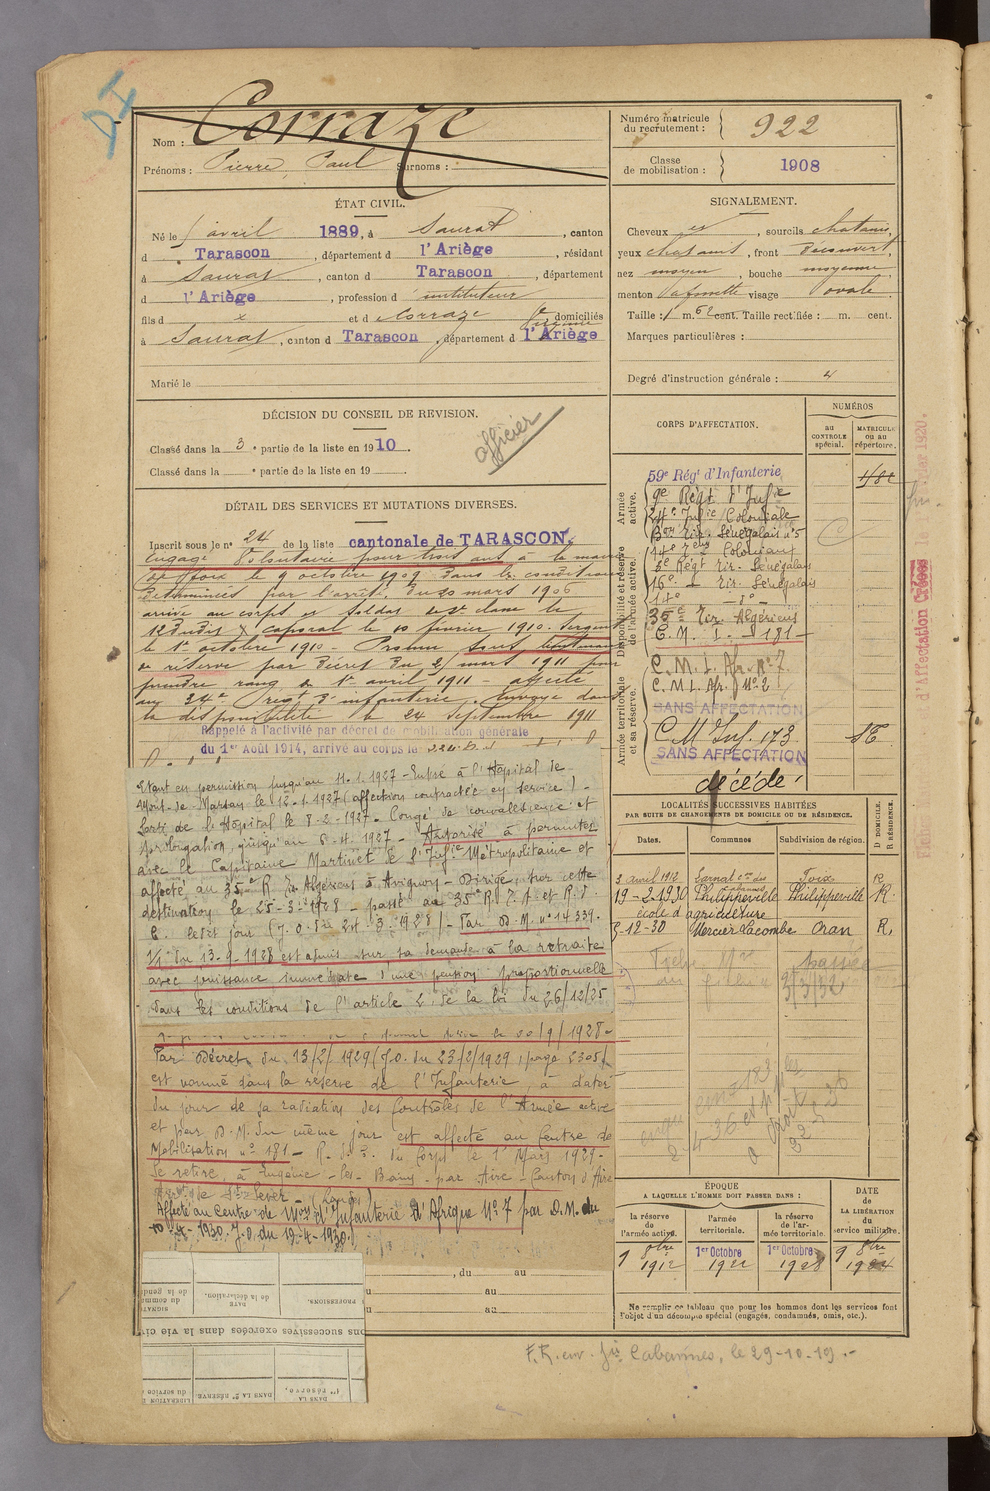 Nom : Corraze
Prénoms : Pierre, Paul Surnoms :
Numéro matricule du recrutement : 922
Classe de mobilisation : 1908
ÉTAT CIVIL.
Né le 5 avril 1889, à Saurat, canton
d Tarascon, département d l'Ariège, résidant
à Saurat, canton d Tarascon, département
d l'Ariège, profession d instituteur
fils d x et d Corraze, domiciliés
à Saurat, canton d Tarascon, département d l'Ariège
Marié le
SIGNALEMENT.
Cheveux et, sourcils chatains,
yeux chatains, front découvert,
nez moyen, bouche moyenne,
menton visage ovale.
Taille : 1 m. 62 cent. Taille rectifiée : m. cent.
Marques particulières :
Degré d'instruction générale : 4
DÉCISION DU CONSEIL DE REVISION.
Classé dans la 3e partie de la liste en 1910.
Classé dans la e partie de la liste en 19
officier
DÉTAIL DES SERVICES ET MUTATIONS DIVERSES.
Inscrit sous le n° 24 de la liste cantonale de TARASCON.
Engagé Volontaire pour trois ans à la mairie
de Foix le 9 octobre 1909 dans les conditions
déterminées par l'arrêté du 20 mars 1906
arrivé au corps et soldat de 2e classe le
12 dudit caporal le 10 février 1910. Sergent
le 1er octobre 1910 - Promu sous lieutenant
de réserve par décret du 2 mars 1911 pour
prendre rang du 1er avril 1911 - affecté
au 24e régt d'infanterie, envoyé dans
la disponibilité le 24 septembre 1911
Rappelé à l'activité par décret de mobilisation générale
du 1er Août 1914, arrivé au corps le
Etant en permission jusqu'au 11.1.1927 - Entré à l'Hôpital de
Mont-de-Marsan le 12-1.1927 (affection contractée en service) -
Sorti de l'Hôpital le 8-2-1927 - Congé de convalescence et
prolongation, jusqu'au 8.4.1927 - Autorisé à permuter
avec le Capitaine Martinet de l'Infie Métropolitaine et
affecté au 35e R. Tir Algériens à Avignon - Dirigé sur cette
destination le 25-3-1928 - passé au 35e R.T.A et R.d.
C. ledit jour (J.O. du 24.3.1928) - Par D.M. n° 14339.
du 13-9-1928 est admis sur sa demande à la retraite
avec jouissance immédiate d'une pension proportionnelle
dans les conditions de l'article 2 de la loi du 26/12/25
le 20/9/1928 -
Par Décret du 13/2/1929 (J.O. du 23/2/1929, page 2305)
est nommé dans la réserve de l'Infanterie, à dater
du jour de sa radiation des Contrôles de l'Armée active
et par D.M. du même jour est affecté au Centre de
Mobilisation n° 181 - R. d. C. du Corps le 1er Mars 1929 -
Se retire à Eugénie-les-Bains par Aire - Canton d'Aire
Arrt de St Sever - (Landes)
Affecté au Centre de Mon d'Infanterie d'Afrique N° 7 par D.M. du
10-4-1930. J.O. du 19-4-1930.
, du au
u au
u au
CORPS D'AFFECTATION.
NUMÉROS
au CONTROLE spécial.
MATRICULE ou au répertoire.
Armée active.
Disponibilité et réserve de l'armée active.
Armée territoriale et sa réserve.
59e Régt d'Infanterie 482
9e Régt d'Infie
24e Infie Coloniale
Bon Tir. Sénégalais n° 5
Coloniaux
5e Régt Tir. Sénégalais
16e — Tir. Sénégalais
14e — d° —
35e Tir. Algériens
C. M. I. - 181 -
C. M. I. Afr. N° 7
C. M. I. Afr. N° 2
SANS AFFECTATION
C M Inf. 173
SANS AFFECTATION
décédé
LOCALITÉS SUCCESSIVES HABITÉES
PAR SUITE DE CHANGEMENTS DE DOMICILE OU DE RÉSIDENCE.
Dates. Communes Subdivision de région. D DOMICILE. R RÉSIDENCE.
3 avril 1912 Foix R
19-2-1930 Philippeville Philippeville R
école d'agriculture
5-12-30 Mercier Lacombe Oran R,
3/3/32
ÉPOQUE
A LAQUELLE L'HOMME DOIT PASSER DANS :
la réserve de l'armée active.
l'armée territoriale.
la réserve de l'armée territoriale.
DATE de LA LIBÉRATION du service militaire.
9 8bre 1912
1er Octobre 1922
1er Octobre 1928
9 8bre
Ne remplir ce tableau que pour les hommes dont les services font
l'objet d'un décompte spécial (engagés, condamnés, omis, etc.).
F.R. env. Cabannes, le 29-10-19. -
d'Affectation
PROFESSIONS.
DATE de la déclaration.
ons successives exercées dans la vie civ
DANS LA 2e RÉSERVE.
DANS LA 1re réserve,